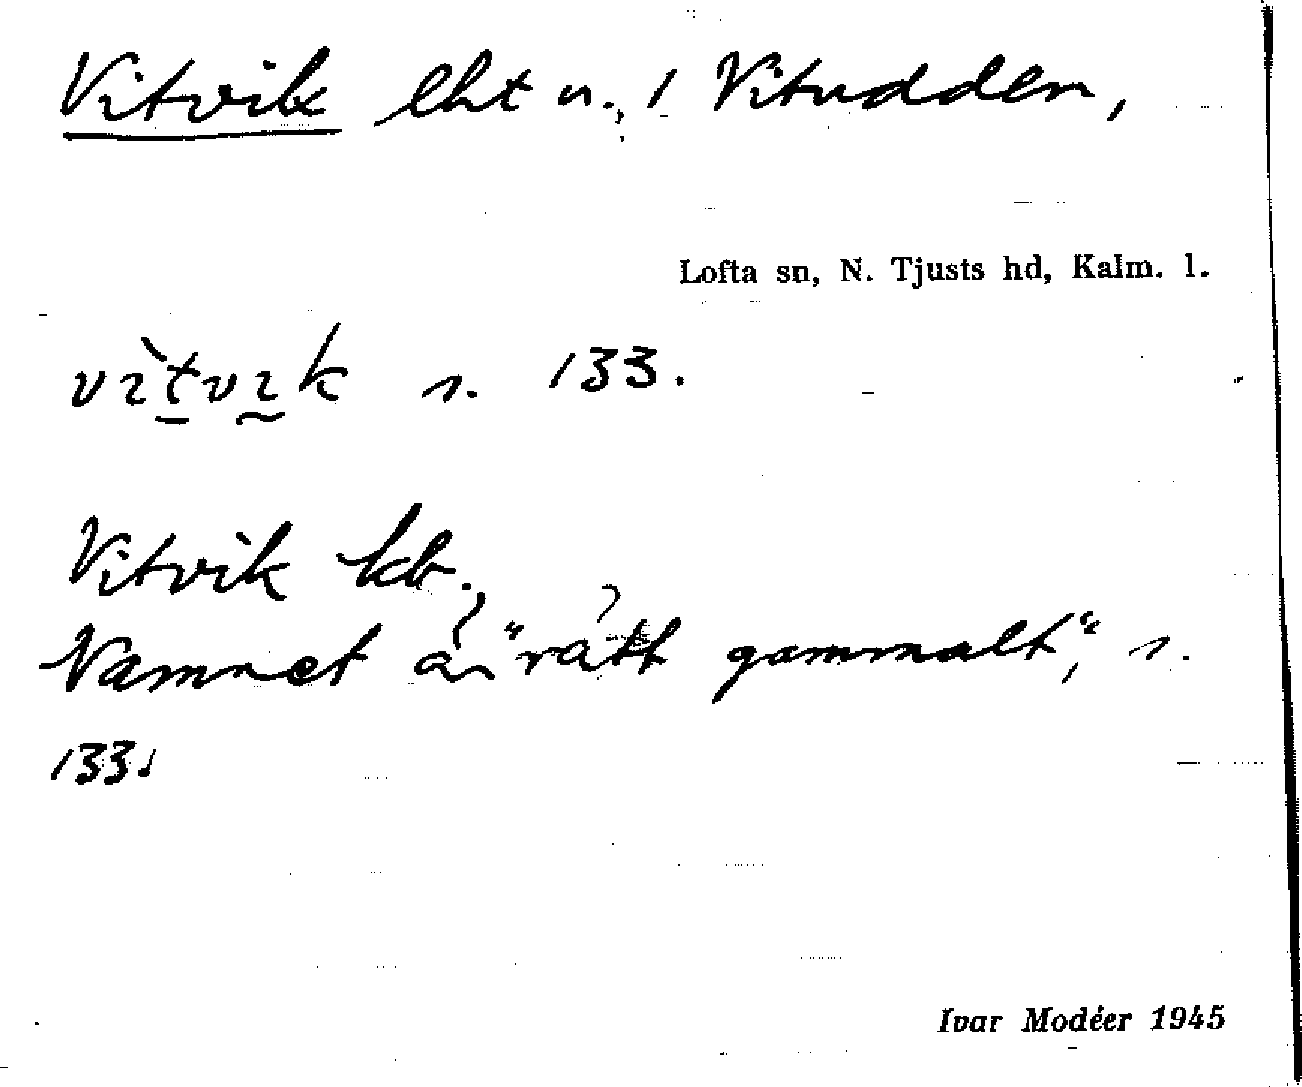 Vitvik lht u., / Vitudden,
Lofta sn, N. Tjusts hd, Kalm. l.
vìtvik s. 133.
Vitvik kb.
Namnet är "rätt gammalt", s.
133.
Ivar Modéer 1945